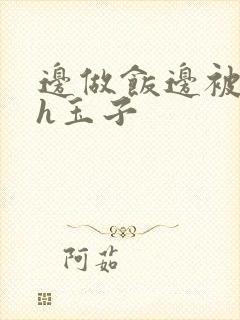 邊做飯邊被
h玉子
阿茹